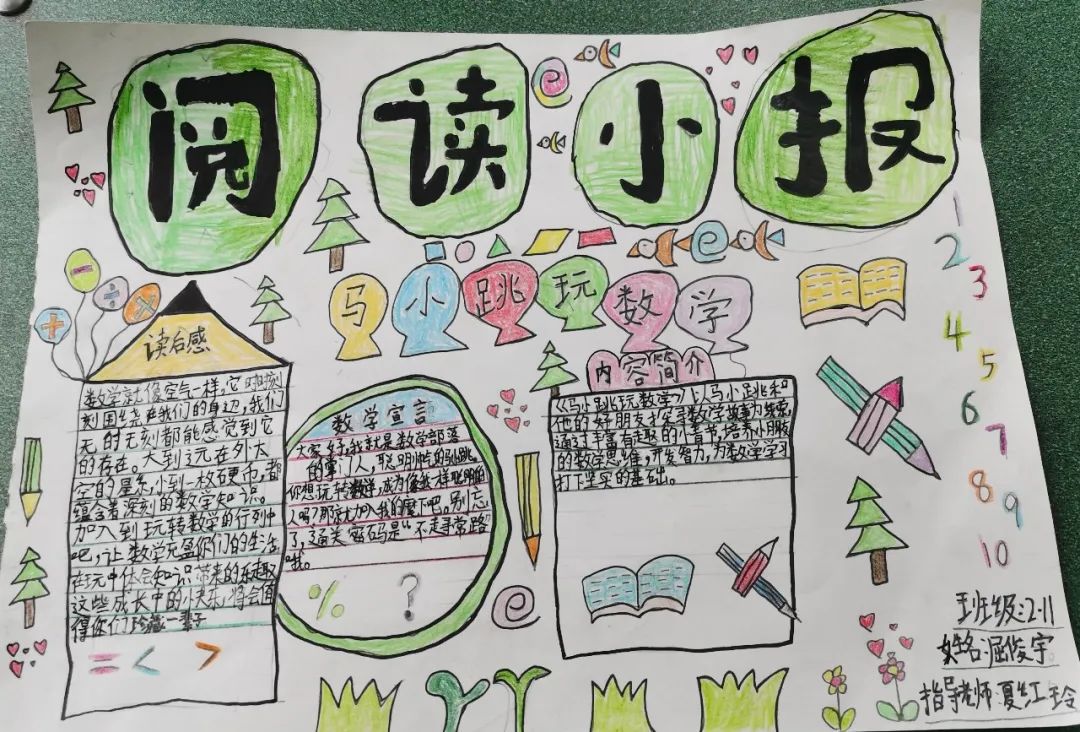 阅读小报
马小跳玩数学
读后感
数学就像空气一样,它时刻
刻围绕在我们的身边,我们
无时无刻都能感觉到它
的存在。大到远在外太
空的星系,小到一枚硬币,都
蕴含着深刻的数学知识。
加入到玩转数学的行列中
吧,让数学充盈你们的生活,
在玩中体会知识带来的乐趣
这些成长中的小快乐,将会值
得你们珍藏一辈子
= < >
数学宣言
大家好,我就是数学部落
的掌门人,聪明帅气的马小跳
你想玩转数学,成为像我一样聪明的
人吗?那就加入我的麾下吧。别忘
了,通关密码是“不走寻常路
”哦。
% ?
内容简介
《马小跳玩数学》以马小跳和
他的好朋友探寻数学故事为线索,
通过丰富有趣的小章节,培养小朋友
的数学思维,开发智力,为数学学习
打下坚实的基础。
1
2
3
4
5
6
7
8
9
10
班级:2.11
姓名:温俊宇
指导老师:夏红玲